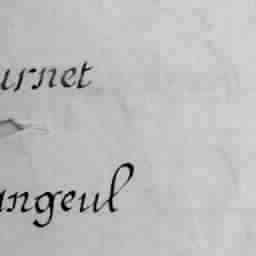 urnet
angeul